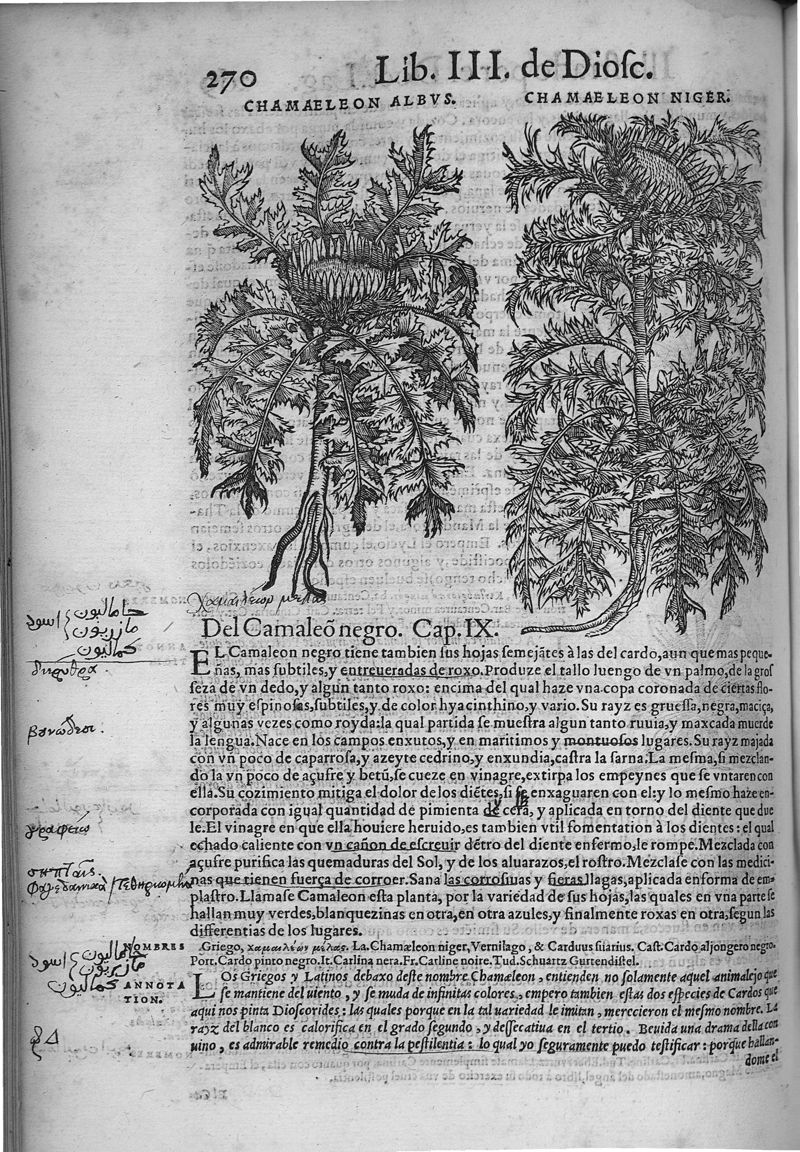 270
Lib. III. de Diosc.
CHAMAELEON ALBVS.
CHAMAELEON NIGER.
χαμαιλέων μέλας
Del Camaleõ negro. Cap. IX.
حامالیون
اسود { مازریون
کمالیون
EL Camaleon negro tiene tambien sus hojas semejãtes à las del cardo, aun que mas peque-
ñas, mas subtiles, y entreueradas de roxo. Produze el tallo luengo de vn palmo, de la gros
seza de vn dedo, y algun tanto roxo: encima del qual haze vna copa coronada de ciertas flo-
res muy espinosas, subtiles, y de color hyacinthino, y vario. Su rayz es gruessa, negra, maciça,
y algunas vezes como royda: la qual partida se muestra algun tanto ruuia, y maxcada muerde
la lengua. Nace en los campos enxutos, y en maritimos y montuosos lugares. Su rayz majada
con vn poco de caparrosa, y azeyte cedrino, y enxundia, castra la sarna. La mesma, si mezclan-
do la vn poco de açufre y betũ, se cueze en vinagre, extirpa los empeynes que se vntaren con
ella. Su cozimiento mitiga el dolor de los diẽtes, si se enxaguaren con el: y lo mesmo haze en-
corporada con igual quantidad de pimienta de cera, y aplicada en torno del diente que due
le. El vinagre en que ella houiere heruido, es tambien vtil fomentation à los dientes: el qual
echado caliente con vn cañon de escreuir dẽtro del diente enfermo, le rompe. Mezclada con
açufre purifica las quemaduras del Sol, y de los aluarazos, el rostro. Mezclase con las medici-
nas que tienen fuerça de corroer. Sana las corrosiuas y fieras llagas, aplicada en forma de em-
plastro. Llamase Camaleon esta planta, por la variedad de sus hojas, las quales en vna parte se
hallan muy verdes, blanquezinas en otra, en otra azules, y finalmente roxas en otra, segun las
differentias de los lugares.
NOMBRES Griego, χαμαιλέων μέλας. La. Chamæleon niger, Vernilago, & Carduus silarius. Cast. Cardo aljongero negro.
Port. Cardo pinto negro. It. Carlina nera. Fr. Carline noire. Tud. Schuartz Gurtendistel.
حامالیون
اسود { مازریون
کمالیون
ANNOTA
TION.
LOs Griegos y Latinos debaxo deste nombre Chamæleon, entienden no solamente aquel animalejo que
se mantiene del uiento, y se muda de infinitas colores, empero tambien estas dos especies de Cardos que
aqui nos pinta Dioscorides: las quales porque en la tal uariedad le imitan, merecieron el mesmo nombre. La
rayz del blanco es calorifica en el grado segundo, y dessecatiua en el tertio. Beuida una drama della con
uino, es admirable remedio contra la pestilentia: lo qual yo seguramente puedo testificar: porque hallan-
dome el